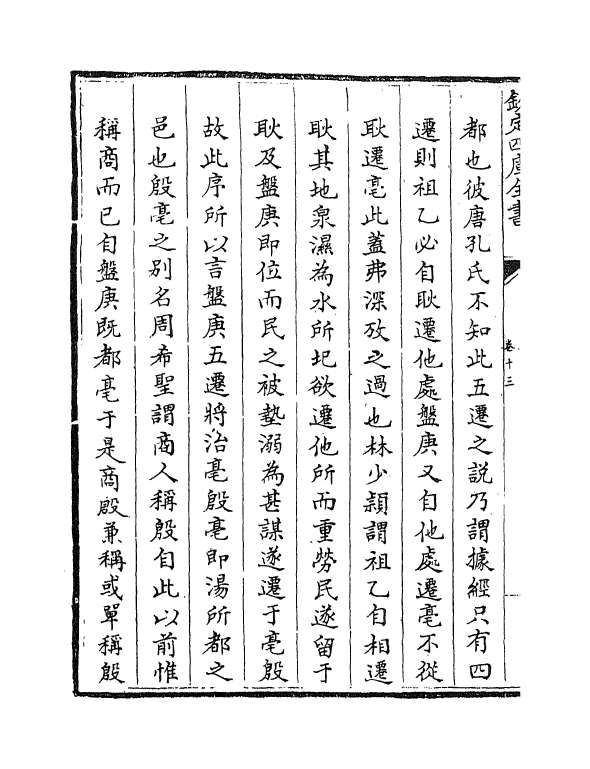 欽定四庫全書
卷十三
都也彼唐孔氏不知此五遷之說乃謂據經只有四
遷則祖乙必自耿遷他處盤庚又自他處遷亳不從
耿遷亳此蓋弗深攷之過也林少穎謂祖乙自相遷
耿其地泉濕為水所圮欲遷他所而重勞民遂留于
耿及盤庚即位而民之被墊溺為甚謀遂遷于亳殷
故此序所以言盤庚五遷將治亳殷亳即湯所都之
邑也殷亳之别名周希聖謂商人稱殷自此以前惟
稱商而已自盤庚既都亳于是商殷兼稱或單稱殷